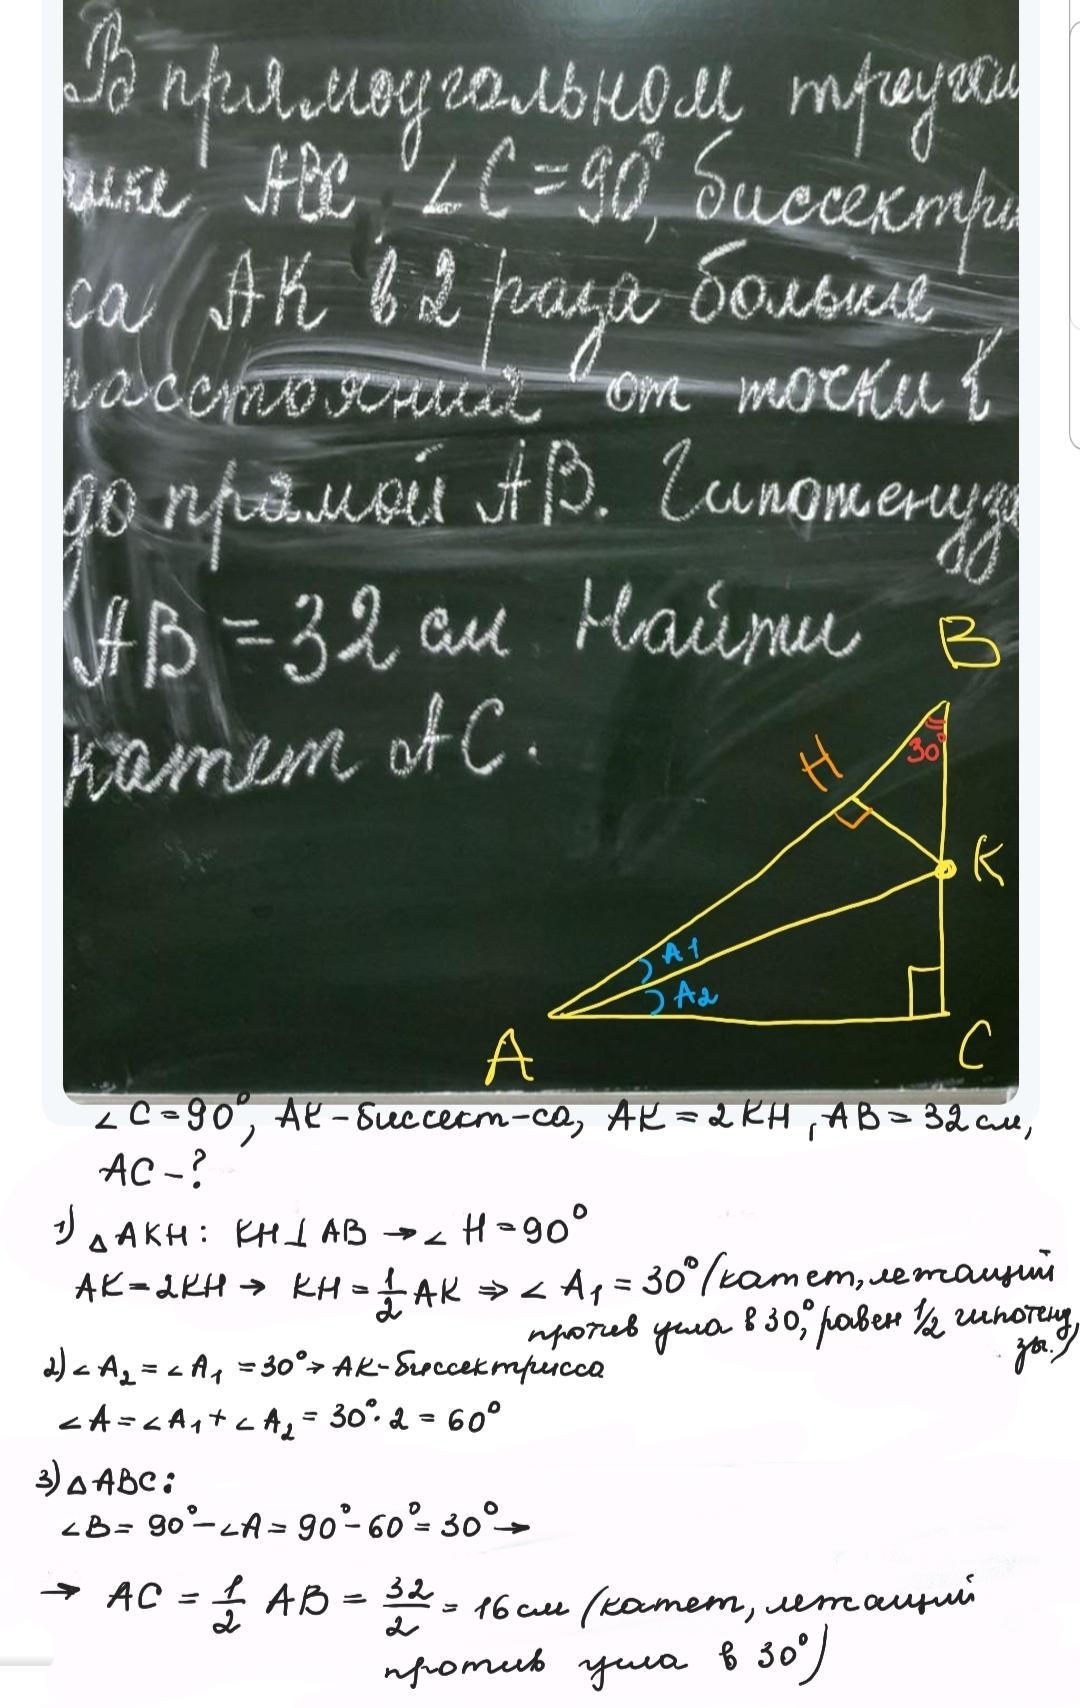 В прямоугольном треуголь
нике АВС ∠C=90°, биссектри
са АК в 2 раза больше
расстояния от точки К
до прямой АВ. Гипотенуза
АВ=32 см. Найти
катет АС.
B
H
30°
K
A1
A2
A
C
∠C=90°, АК-биссект-са, АК=2КН, АВ=32см,
АС-?
1) △АКН: КН⊥АВ →∠H=90°
АК=2КН → КН=1/2 АК ⇒ ∠A₁=30° (катет, лежащий
против угла в 30°, равен 1/2 гипотену
зы.)
2) ∠A₂=∠A₁=30°→ АК-биссектрисса
∠A=∠A₁+∠A₂=30°·2=60°
3) △АВС:
∠B=90°-∠A=90°-60°=30°→
→ АС=1/2 АВ=32/2=16см (катет, лежащий
против угла в 30°)